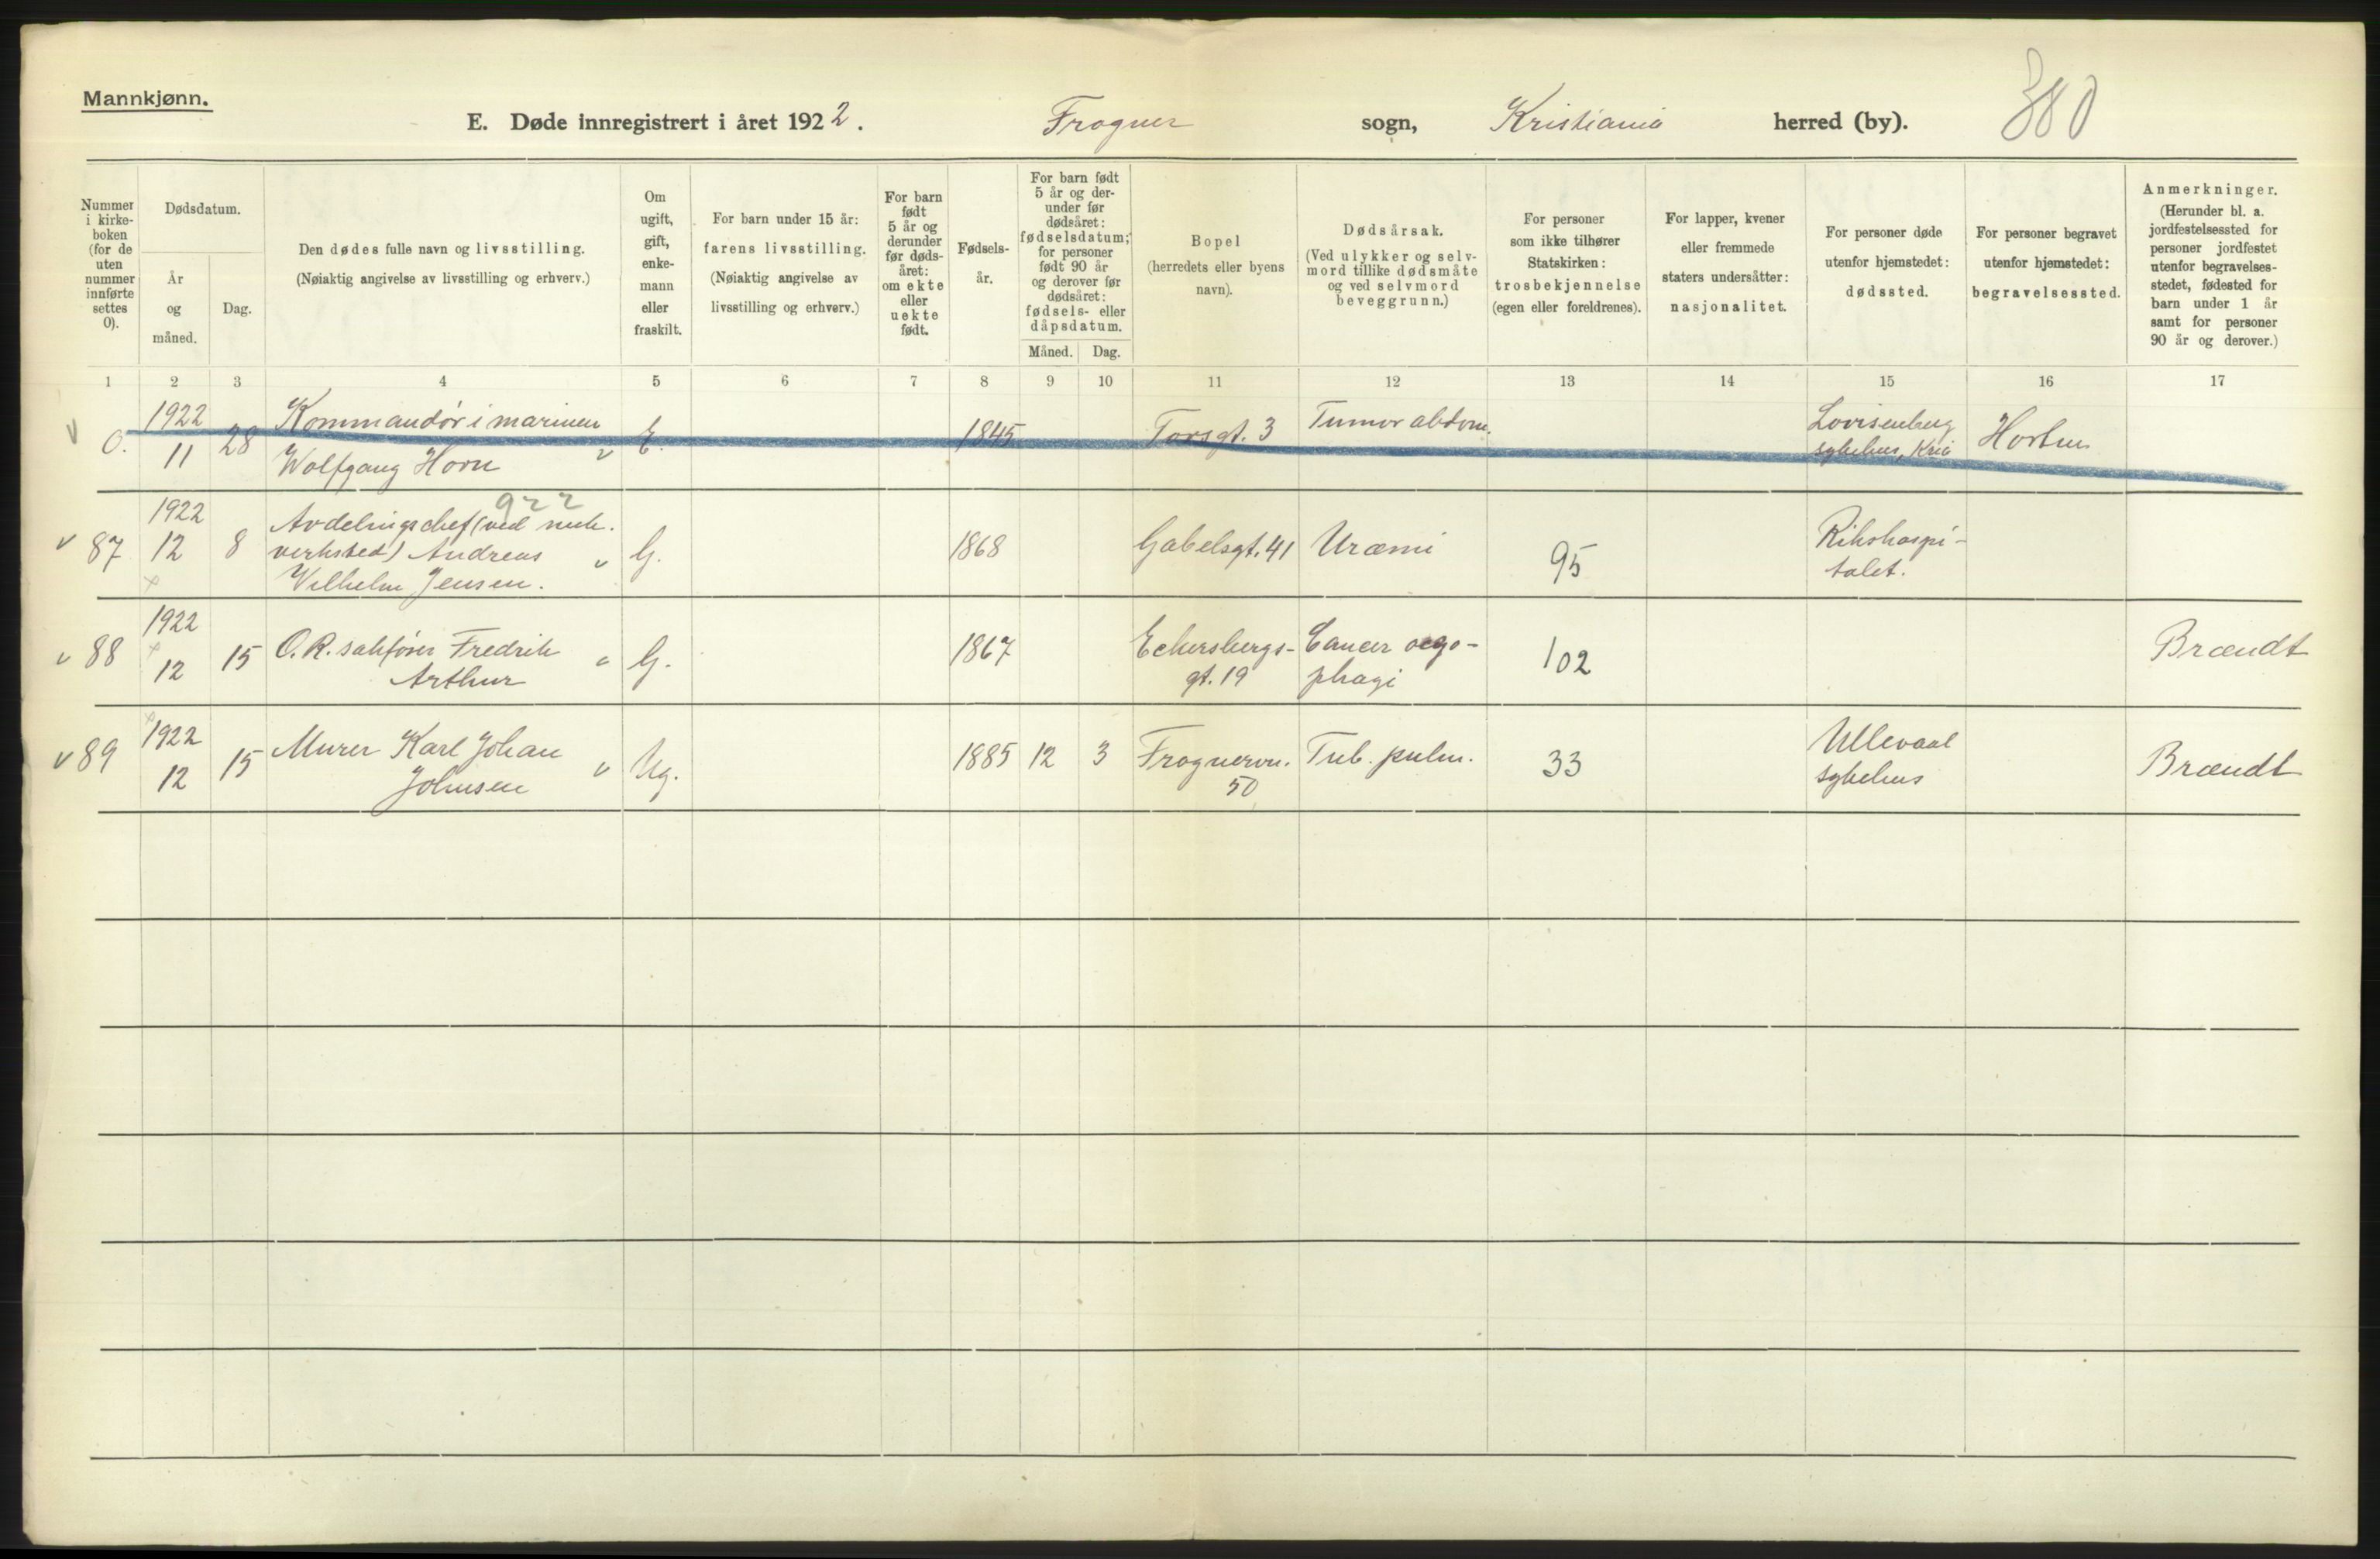 Mannkjønn.
E. Døde innregistrert i året 1922. Frogner sogn, Kristiania herred (by). 380
Nummer i kirkeboken (for de uten nummer innførte settes 0).
Dødsdatum.
År og måned.
Dag.
Den dødes fulle navn og livsstilling.
(Nøiaktig angivelse av livsstilling og erhverv.)
Om ugift, gift, enkemann eller fraskilt.
For barn under 15 år:
farens livsstilling.
(Nøiaktig angivelse av
livsstilling og erhverv.)
For barn født 5 år og derunder før dødsåret: om ekte eller uekte født.
Fødselsår.
For barn født 5 år og derunder før dødsåret: fødselsdatum; for personer født 90 år og derover før dødsåret: fødsels- eller dåpsdatum.
Måned. Dag.
Bopel
(herredets eller byens
navn).
Dødsårsak.
(Ved ulykker og selv-
mord tillike dødsmåte
og ved selvmord
beveggrunn.)
For personer
som ikke tilhører
Statskirken:
trosbekjennelse
(egen eller foreldrenes).
For lapper, kvener
eller fremmede
staters undersåtter:
nasjonalitet.
For personer døde
utenfor hjemstedet:
dødssted.
For personer begravet
utenfor hjemstedet:
begravelsessted.
Anmerkninger.
(Herunder bl. a.
jordfestelsessted for
personer jordfestet
utenfor begravelses-
stedet, fødested for
barn under 1 år
samt for personer
90 år og derover.)
1 2 3 4 5 6 7 8 9 10 11 12 13 14 15 16 17
v 0. 1922 11 28 Kommandør i marinen
Wolfgang Horn v E. 1845 Torsgt. 3 Tumor abdom. Lovisenberg
sykehus, Kria Horten
922
v 87 1922 12 8 Avdelingschef (ved mek.
verksted) Andreas
Vilhelm Jensen. v G. 1868 Gabelsgt. 41 Uræmi 95 Rikshospi-
talet.
v 88 1922 12 15 O.R. sakfører Fredrik
Arthur G. 1867 Eckersbergs-
gt. 19 Cancer oego-
phagi 102 Brændt
v 89 1922 12 15 Murer Karl Johan
Johnsen v Ug. 1885 12 3 Frognervn.
50 Tub. pulm. 33 Ullevaal
sykehus Brændt